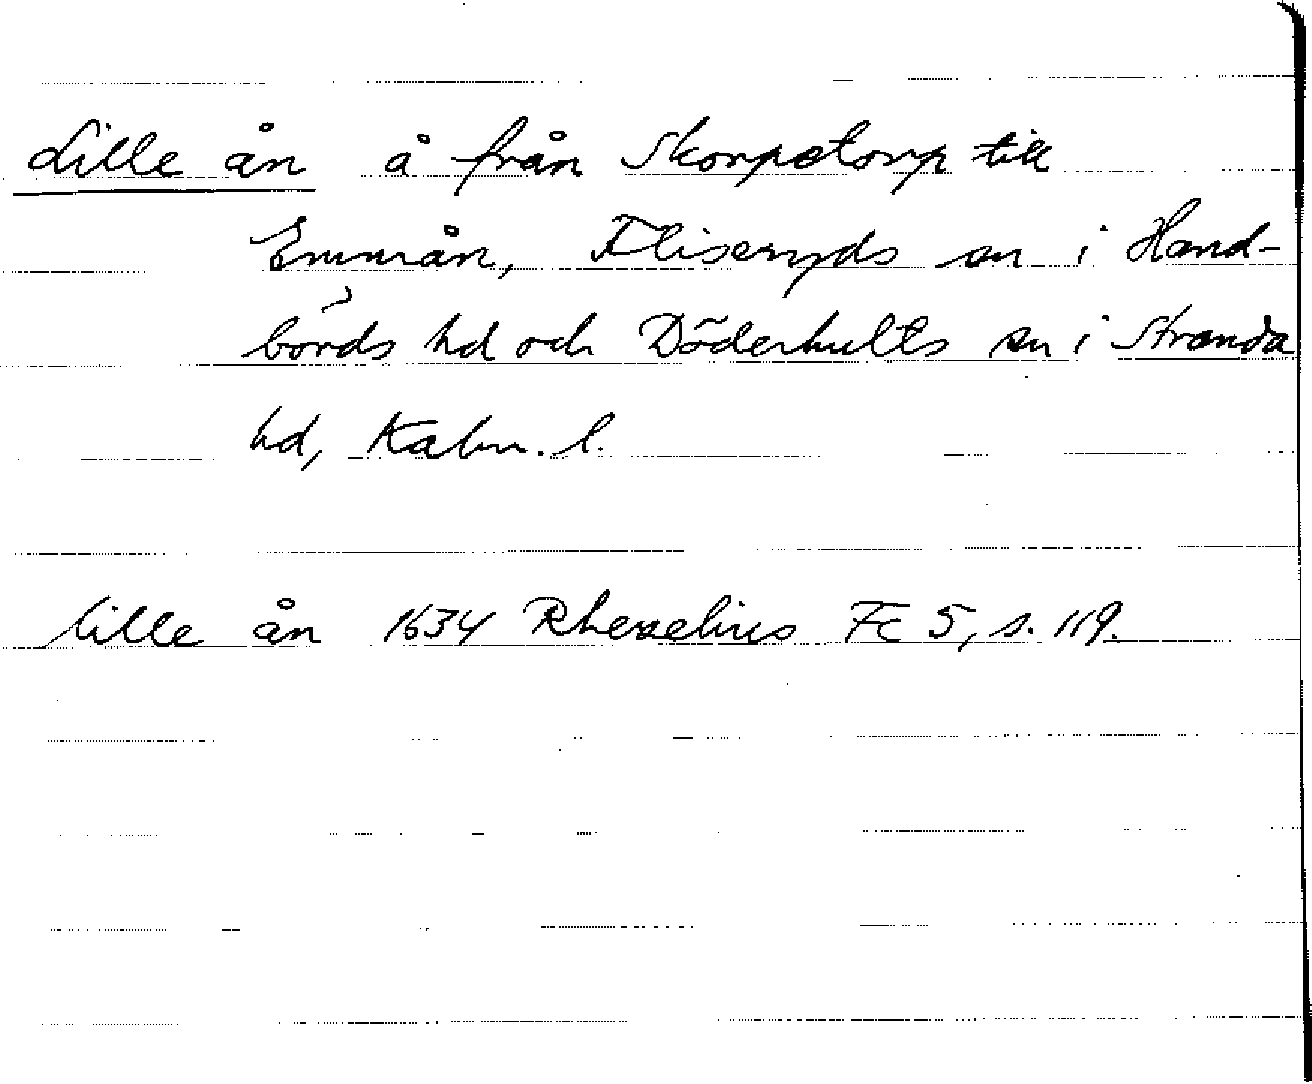 Lille ån å från Skorpetorp till
Emmån, Fliseryds sn i Hand-
börds hd och Döderhults sn i Stranda
hd, Kalm. l.
lille ån 1634 Rhezelius Fc 5, s. 119.